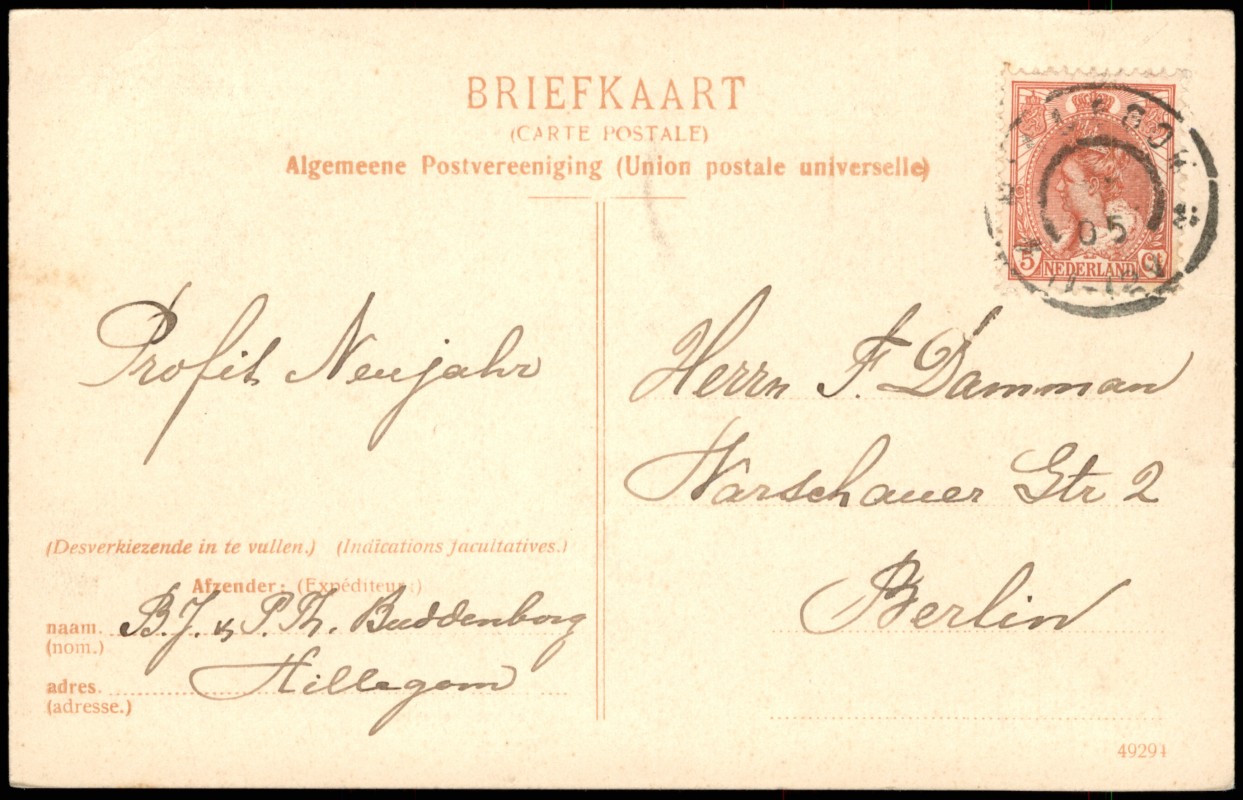 BRIEFKAART
(CARTE POSTALE)
Algemeene Postvereeniging (Union postale universelle)
05
11-12V
5 NEDERLAND Ct
Profit Neujahr
Herrn F. Damman
Warschauer Str 2
Berlin
(Desverkiezende in te vullen.) (Indications facultatives.)
Afzender: (Expéditeur:)
naam. B.J. & P.Th. Buddenborg
(nom.)
adres. Hillegom
(adresse.)
49294